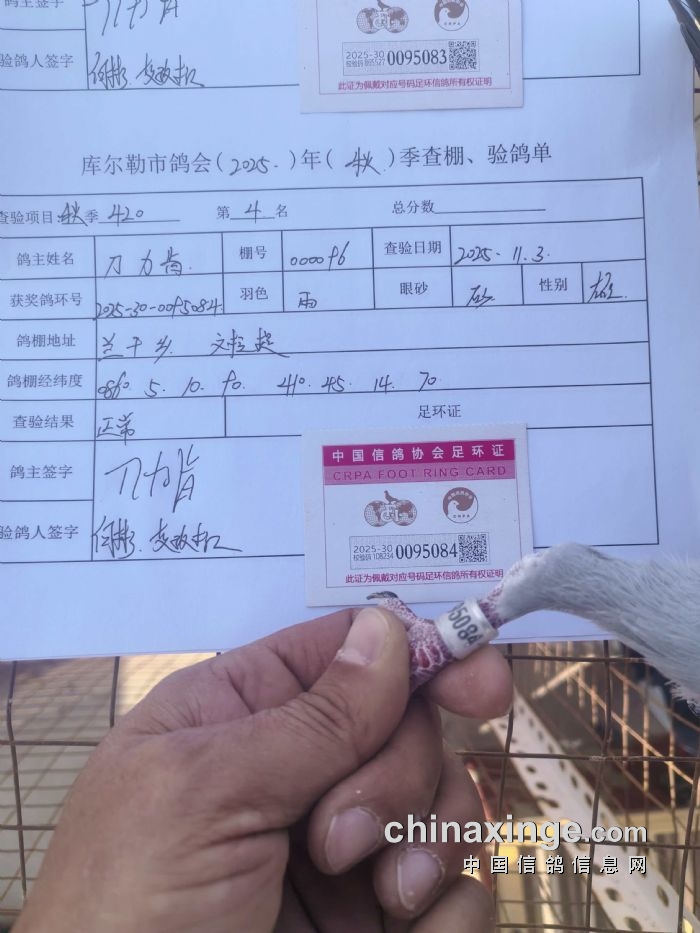 鸽主姓名
刀力肯
验鸽人签字
2025-30 0095083
此证为佩戴对应号码足环信鸽所有权证明
库尔勒市鸽会(2025.)年(秋)季查棚、验鸽单
查验项目:秋季420 第4名 总分数
鸽主姓名 刀力肯 棚号 000096 查验日期 2025.11.3.
获奖鸽环号 2025-30-0095084 羽色 雨 眼砂 砂 性别 雄
鸽棚地址 兰干乡.
鸽棚经纬度 086° 5. 10. 90. 410. 45. 14. 70
查验结果 正常 足环证
鸽主签字 刀力肯
验鸽人签字
中国信鸽协会足环证
CRPA FOOT RING CARD
2025-30 0095084
校验码 108234
此证为佩戴对应号码足环信鸽所有权证明
95084
chinaxinge.com
中国信鸽信息网